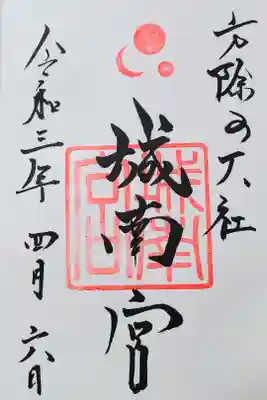 方除の大社
城南宮
令和三年 四月 六日